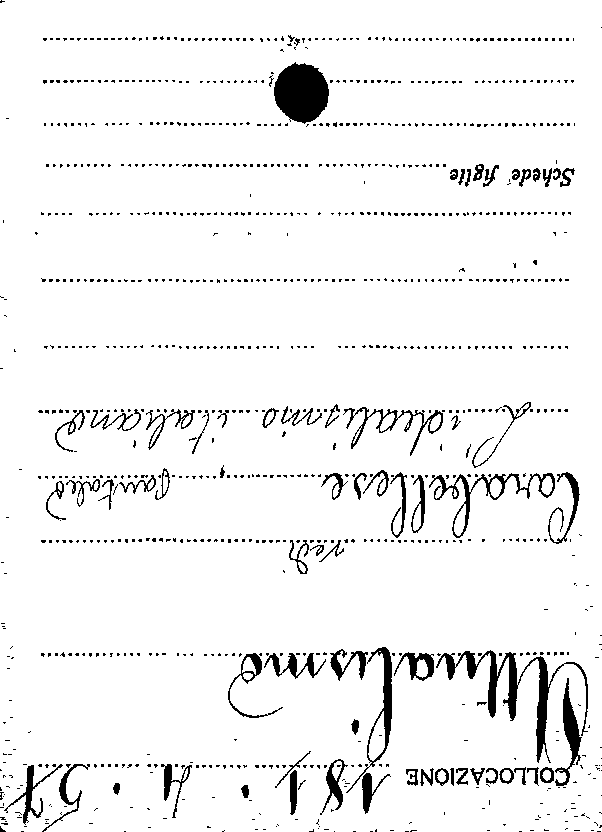 COLLOCAZIONE 181 . 4 . 57
Attualismo
vedi
Carabellese, Pantaleo
L'idealismo italiano
Schede figlie